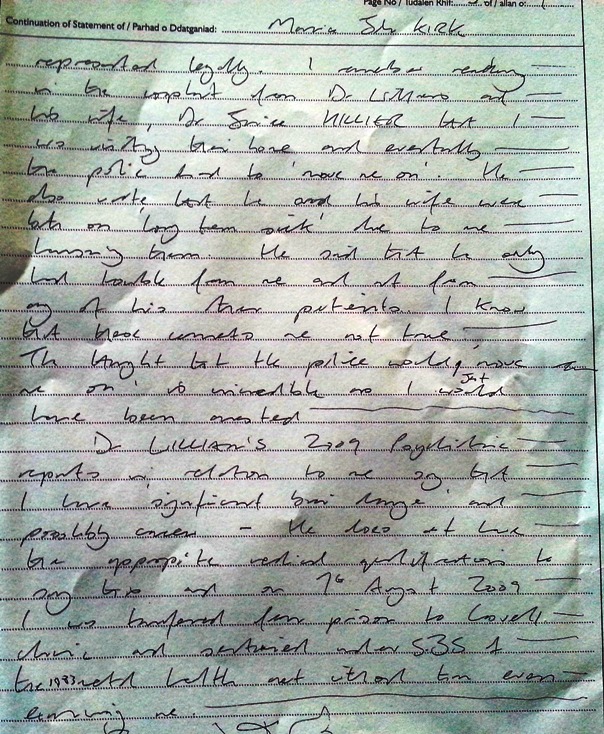 Page No / Tudalen Rhif: of / allan o:
Continuation of Statement of / Parhad o Ddatganiad: KIRK
represented legally. I remember reading
in the complaint from Dr and
his wife, Dr HILLIER that I
was visiting their home and eventually
the police had to 'move me on'. He
also wrote that he and his wife were
both on 'long term sick' due to me
harassing them. He said that he only
had trouble from me and not from
any of his other patients. I know
that these comments are not true.
The thought that the police would 'move
me on' is incredible as I would just
have been arrested
Dr 2009 Psychiatric
reports in relation to me say that
I have 'significant brain damage' and
possibly cancer - He does not have
the appropriate medical qualifications to
say this and on 7th August 2009
I was transferred from prison to
clinic and sectioned under S35 of
the 1983 mental health act without them even
me.